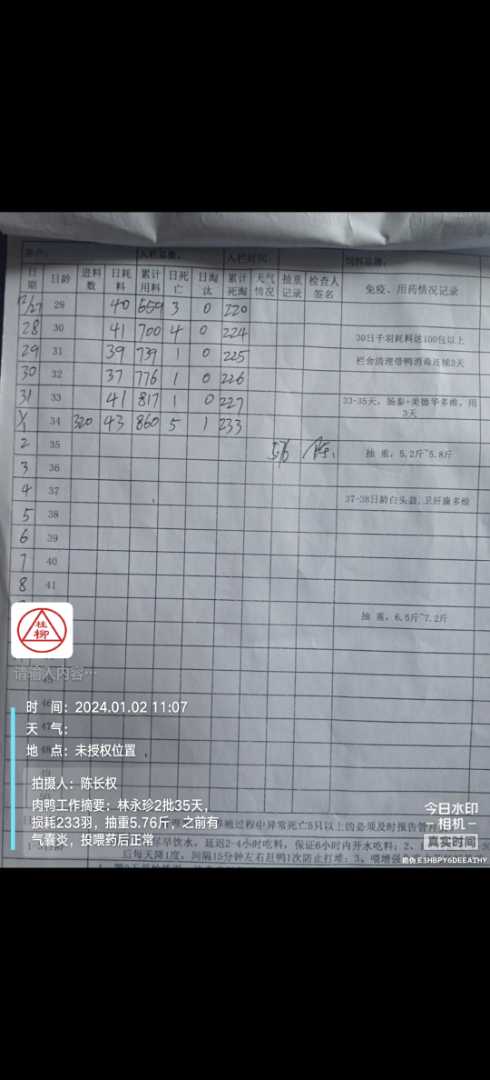 入栏总数： 入栏时间： 饲料品牌：
日期 日龄 进料数 日耗料 累计用料 日死亡 日淘汰 累计死淘 天气情况 抽重记录 检查人签名 免疫、用药情况记录
12/27 29 40 659 3 0 220
28 30 41 700 4 0 224 30日千羽耗料达100包以上
29 31 39 739 1 0 225 栏舍清理带鸭消毒连续3天
30 32 37 776 1 0 226
31 33 41 817 1 0 227 33-35天，肠泰+美德华多维，用3天
1/1 34 320 43 860 5 1 233
2 35 抽 重，5.2斤~5.8斤
3 36
4 37 37-38日龄白头翁,卫肝康多维
5 38
6 39
7 40
8 41
抽 重，6.5斤~7.2斤
桂柳
请输入内容…
时 间：2024.01.02 11:07
天 气：
地 点：未授权位置
拍摄人：陈长权
肉鸭工作摘要：林永珍2批35天，
损耗233羽，抽重5.76斤，之前有
气囊炎，投喂药后正常
过程中异常死亡5只以上的必须及时报告管
尽早饮水，延迟2-4小时吃料，保证6小时内开水吃料；2、
后每天降1度，间隔15分钟左右赶鸭1次防止打堆；3、喂增强
今日水印
相机
真实时间
防伪 E3HBPY6DEEATHY